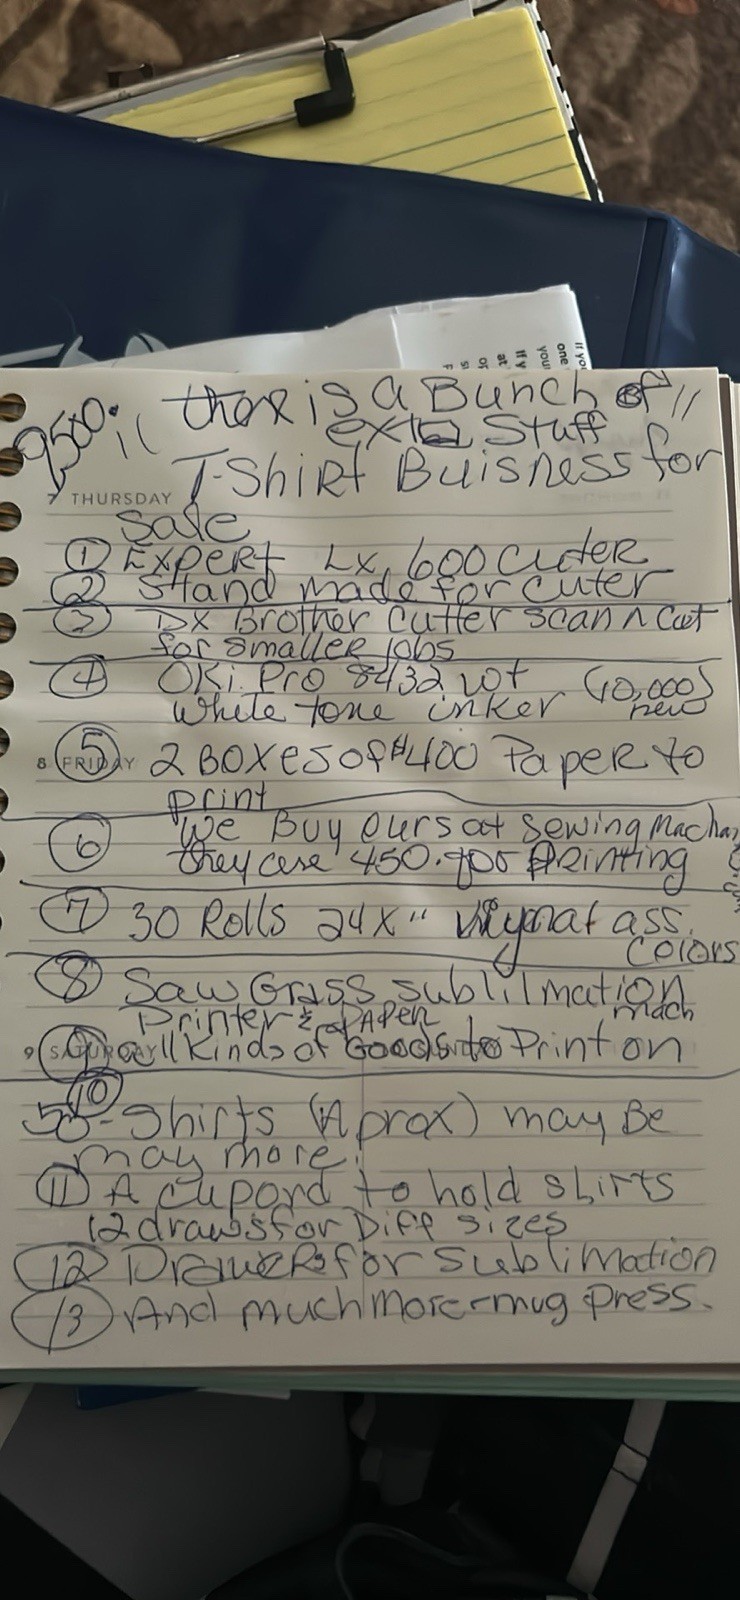 9500. there is a Bunch of
extra Stuff
T-Shirt Buisness for
7 THURSDAY
Sale
① Expert Lx 600 Cuter
② Stand made for Cuter
③ DX Brother Cutter Scan n Cut
for smaller jobs
④ OKi Pro 8432 wt (10,000)
white tone inker new
8 FRIDAY
⑤ 2 Boxes of $400 Paper to
print
⑥ We Buy ours at Sewing Machan
they are 450. for Printing
⑦ 30 Rolls 24x" ass.
Colors
⑧ Saw Grass sublilmation
Printer & Paper mach
9 SATURDAY
⑨ all Kinds of Goods to Print on
⑩
50-Shirts (Aprox) may Be
may more.
⑪ A cupord to hold shirts
12 draws for Diff sizes
⑫ Drawers for Sublimation
⑬ And much more-mug press.